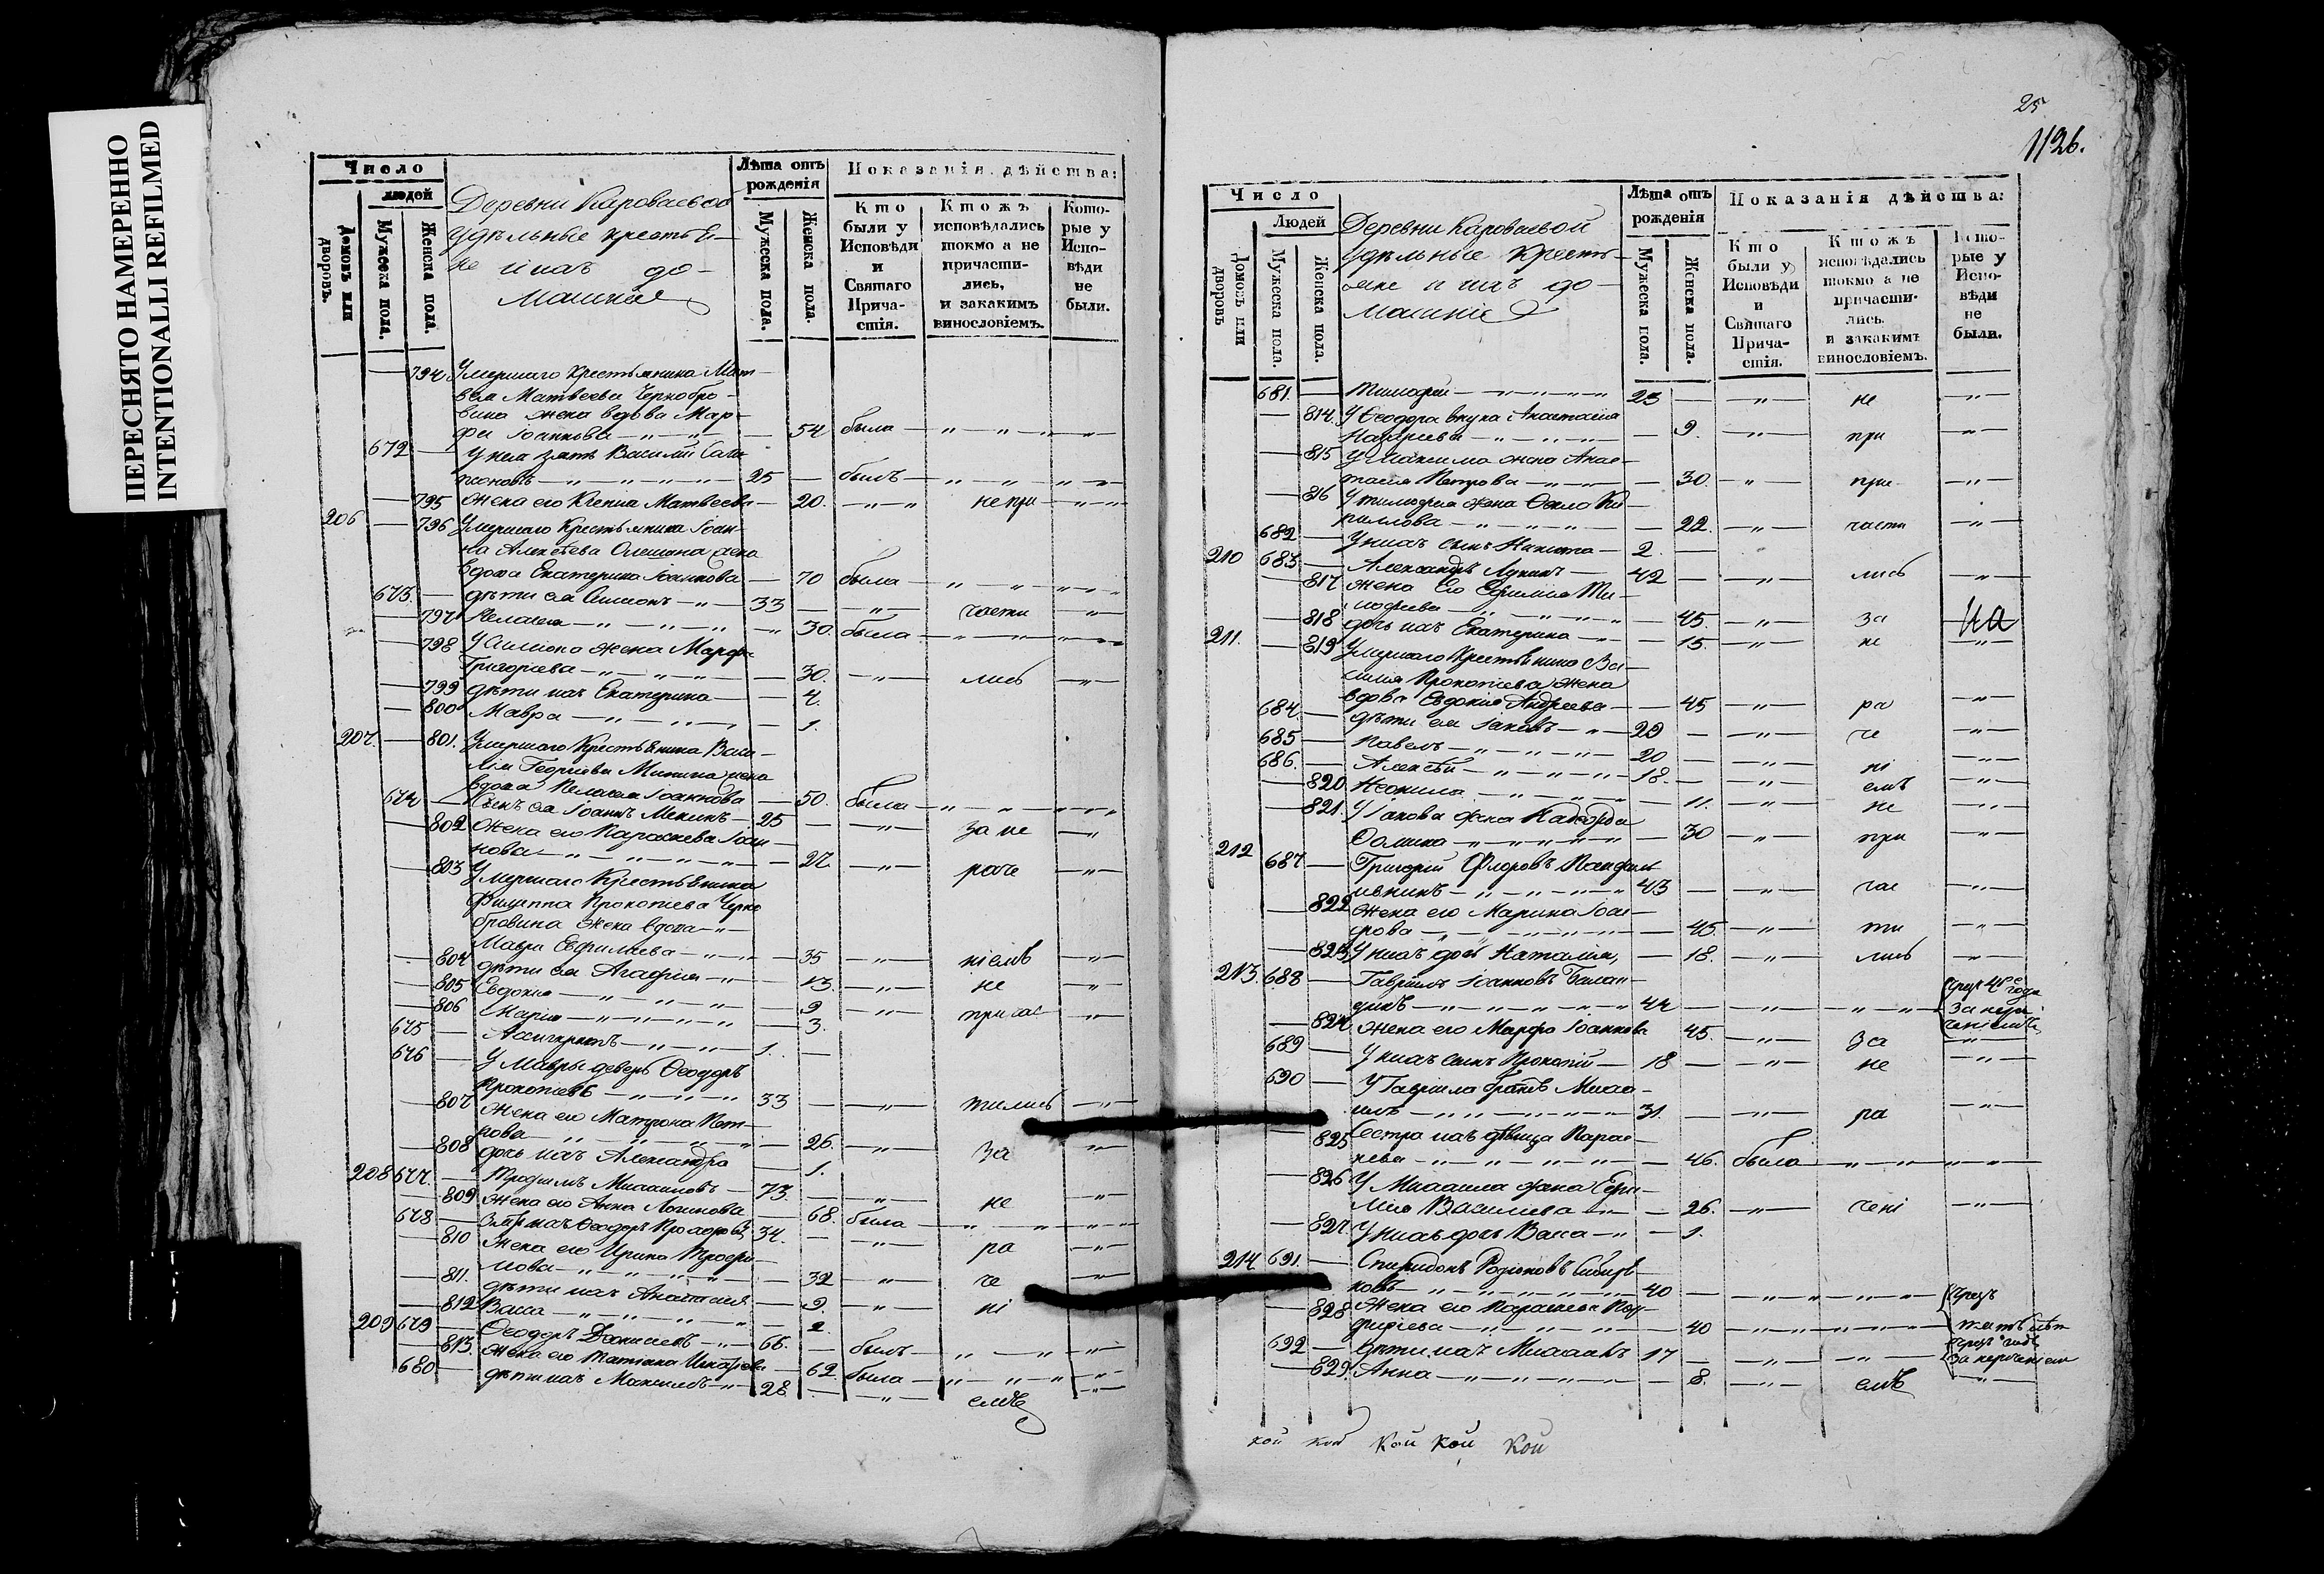 ПЕРЕСНЯТО НАМЕРЕННО
INTENTIONALLI REFILMED
Число
людей
Домовъ или дворовъ.
Мужеска пола.
Женска пола.
Деревни Кароваевой
удѣльные крестья-
не и ихъ до-
машніе
Лѣта отъ рожденія
Мужеска пола.
Женска пола.
Показанія дѣйства:
Кто были у Исповѣди и Святаго Прича-стія.
Ктожъ исповѣдались токмо а не причасти-лись, и закакимъ винословіемъ.
Кото-рые у Испо-вѣди не были.
— 794 Умершаго крестьянина Мат-
вея Матвеева Чернобро-
вина жена вдова Мар-
фа Іоаннова — 54 была
672 — У нея зять Василій
25 — былъ
— 795 жена его Ксенія Матвеева — 20. не при
206 — 796 Умершаго Крестьянина Іоан-
на Алексѣева жена
вдова Екатерина Іоаннова — 70 была
673. — дѣти ея Симіонъ 33 — части
— 797 Пелагея 30. была
— 798 У Симіона жена Марфа
Григорьева — 30. лись
— 799 дѣти ихъ Екатерина — 4.
— 800 Мавра — 1.
207. — 801. Умершаго Крестьянина Васи-
лія Георгіева Микина жена
вдова Пелагея Іоаннова — 50. была
674 — Сынъ ея Іоаннъ Микинъ 25 — за не
— 802 Жена его Параскева Іоан-
нова — 27. раче
— 803 Умершаго Крестьянина
Филиппа Прокопіева Черно
бровина жена вдова
Мавра Евфимиева — 35 ніемъ
— 804 дѣти ея Агафія — 13. не
— 805 Евдокія — 9 причас
— 806 Марія — 3.
675 — Асигкритъ 1. —
676 — У Мавры деверь Ѳеодоръ
Прокопіевъ 33 — тились
— 807 Жена его Матрона Пет-
рова — 26. за
— 808 дочь ихъ Александра — 1.
208 677. — Трофимъ Михаиловъ 73. — не
— 809 Жена его Анна Логинова — 68. была
678 — зять ихъ Ѳеодоръ 34. — ра
— 810 Жена его Ирина Трофи-
мова — 32 че
— 811. дѣти ихъ Анастасія — 9. ні
— 812 Васса — 2.
209 679 — Ѳеодоръ 66. — былъ
— 813. Жена его Татіана — 62. была
680 — дѣти ихъ Максимъ 28. — емъ
25
1126.
Число
Людей
Домовъ или дворовъ
Мужеска пола
Женска пола.
Деревни Кароваевой
Удѣльные Кресть-
яне и ихъ до-
машніе
Лѣта отъ рожденія
Мужеска пола.
Женска пола.
Показанія дѣйства:
Кто были у Исповѣди и Святаго Прича-стія.
Ктожъ исповѣдались токмо а не причасти-лись. и закакимъ винословіемъ.
Кото-рые у Испо-вѣди не были.
681. — Тимофей 23 — не
— 814. У Ѳеодора внука Анастасія
Назарьева — 9. при
— 815 У Максима жена Анас-
тасія Петрова — 30. при
— 816 У Тимофея жена Ѳекла Ки
риллова — 22. части
682 — У нихъ сынъ Никита 2. —
210 683 — Александръ Лукинъ 42 — лись
— 817 Жена его Ефимія Ти-
мофеева — 45. за
— 818 дочь ихъ Екатерина — 15. не
на
211. — 819 Умершаго Крестьянина Ва-
силія Прокопіева жена
вдова Евдокія Андреева — 45 ра
684. — дѣти ея Іаковъ 29 — че
685 — Павелъ 20 — ні
686. — Алексѣй 18. — емъ
— 820 Неонила — 11. не
— 821. У Іакова жена
Ѳомина — 30 при
212 687 — Григорій Флоровъ
43 — час
— 822 Жена его Марина
рова — 45. ти
— 823 У нихъ дочь Наталія, — 18. лись
213. 688 — Гавриилъ Іоанновъ
44 —
— 824 Жена его Марфа Іоаннова 45. за
689 — У нихъ сынъ Прокопій 18 — не
690 — У Гавриила братъ Миха-
илъ 31. — ра
— 825 Сестра ихъ дѣвица Парас-
кева — 46. была
— 826 У Михаила жена
Василиева — 26. чені
— 827. У нихъ дочь Васса — 1.
214 691. — Спиридонъ Родіоновъ
40 —
— 828 Жена его Параскева
— 40
692 — Дѣти ихъ Михаилъ 17 —
— 829. Анна — 8. емъ
кой кой кой кой кой